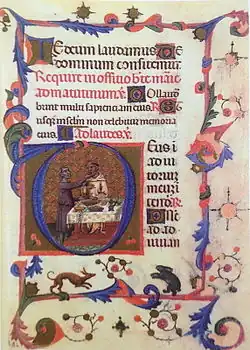 Te deum laudamus Te
dominum confitemur
Require in offitio bte marie
ad matutinum Collauda
bunt multi sapienciam eius
usq in seclm non delebitur memoria
eius Ad laudes
Deus i
ad iu
toriu
meu i
tende
ad ad
iuuan